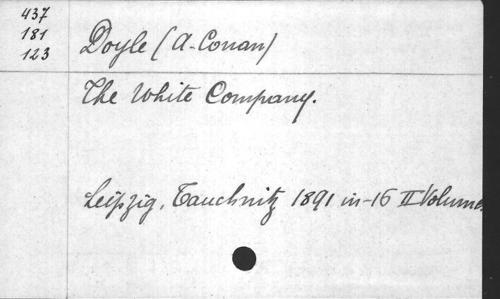 437
181
123
Doyle (A-Conan)
The White Company.
Leipzig, Tauchnitz 1891 in-16 II Volumes